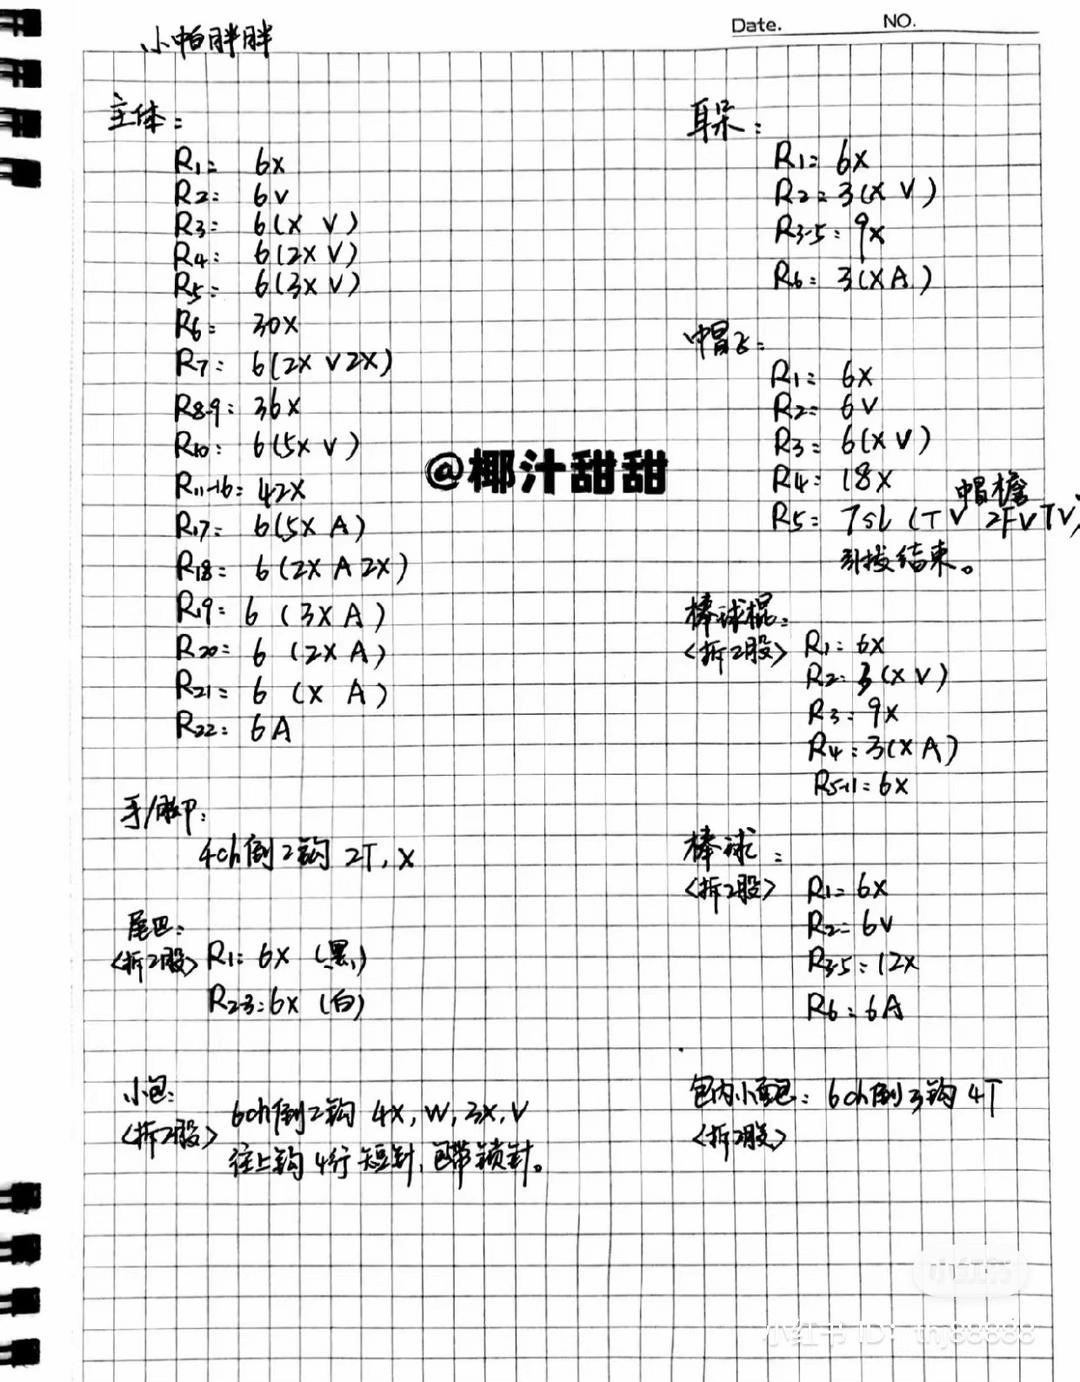 Date. NO.
小帕胖胖
主体:
R1: 6X
R2: 6V
R3: 6(X V)
R4: 6(2X V)
R5: 6(3X V)
R6: 30X
R7: 6(2X V 2X)
R8-9: 36X
R10: 6(5X V)
R11-16: 42X
R17: 6(5X A)
R18: 6(2X A 2X)
R19: 6 (3X A)
R20: 6 (2X A)
R21: 6 (X A)
R22: 6A
手/脚:
4ch倒2钩 2T, X
尾巴:
<拆2股> R1: 6X (黑)
R2-3: 6X (白)
小包:
<拆2股> 6ch倒2钩 4X, W, 3X, V
往上钩4行短针, 包带锁针。
耳朵:
R1: 6X
R2: 3(X V)
R3-5: 9X
R6: 3(X A)
帽子:
R1: 6X
R2: 6V
R3: 6(X V)
R4: 18X
帽檐
R5: 7sl (TV 2FV TV)
引拔结束。
棒球棍:
<拆2股> R1: 6X
R2: 3(X V)
R3: 9X
R4: 3(X A)
R5-11: 6X
棒球:
<拆2股> R1: 6X
R2: 6V
R3-5: 12X
R6: 6A
包内小面包: 6ch倒3钩 4T
<拆2股>
@椰汁甜甜
小红书
小红书 ID: thj88888